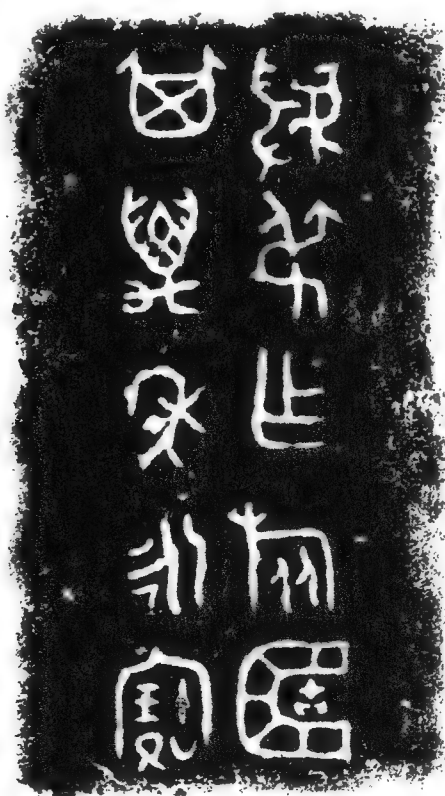 虢叔乍旅簠
其萬年永寶